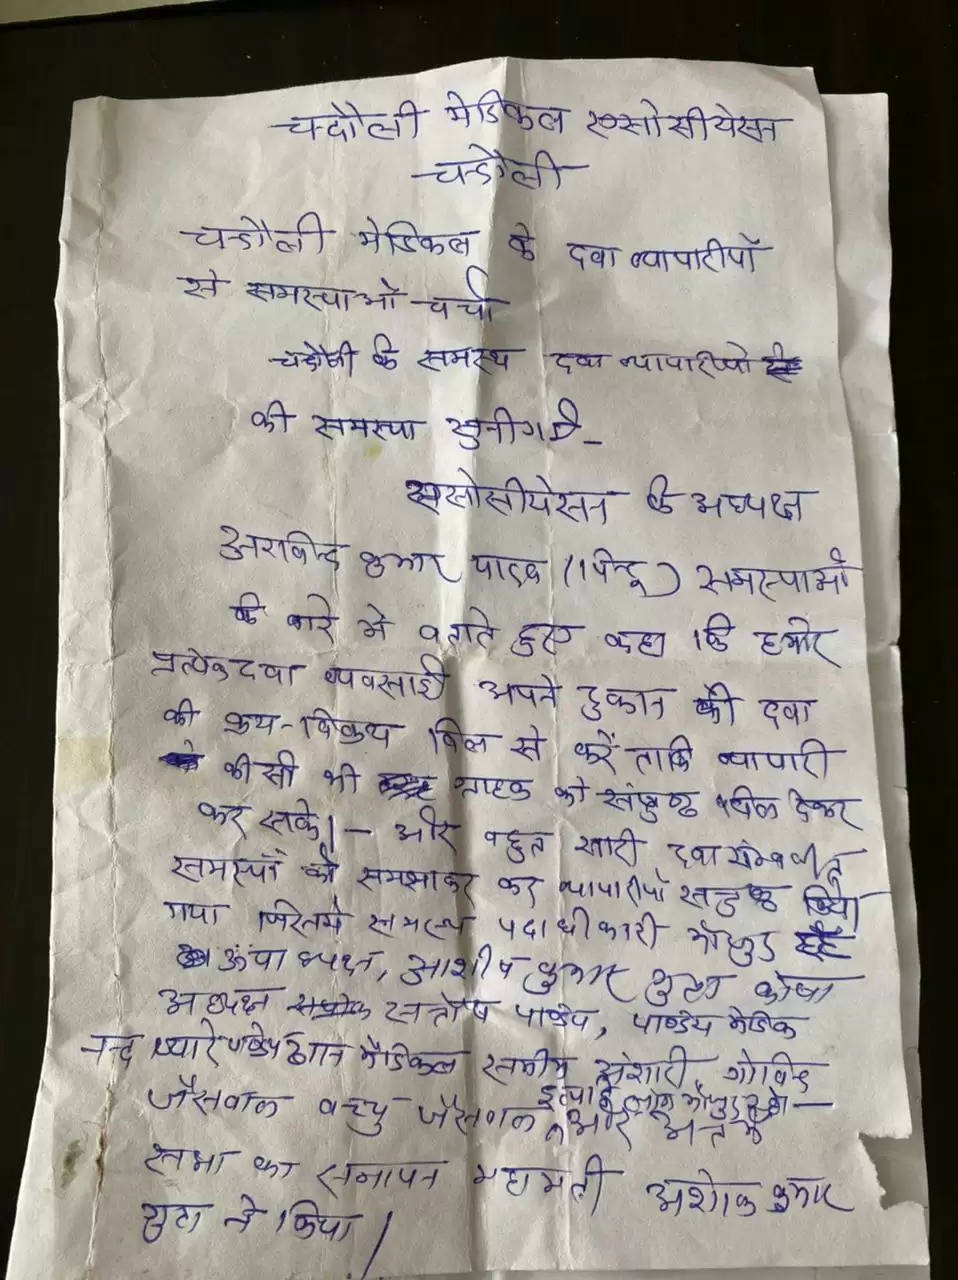 चन्दौली मेडिकल एसोसीयेसन
चन्डौली
चन्डौली मेडिकल के दवा व्यापारीयों
से समस्याओं चर्चा
चन्डौली के समस्थ दवा व्यापारीयो
की समस्या सुनीगई -
एसोसीयेसन के अध्यक्ष
अरविन्द कुमार पाठक (पिन्टू) समस्याओं
के बारे मे बताते हुए कहा कि हमारे
प्रत्येक दवा व्यवसाई अपने दुकान की दवा
की क्रय-विक्रय बिल से करें ताकि व्यापारी
कीसी भी ग्राहक को संतुष्ठ बील देकर
कर सके। - और बहुत सारी दवा सम्बन्धीत
समस्यों को समझाकर कर व्यापारीयों सन्तुष्ठ किया
गया जिसमे समस्थ पदाधीकारी मौजुद
ऊपाध्यक्ष, आशीष कुमार गुप्ता कोषा
अध्यक्ष सन्तोष पाण्डेय, पाण्डेय मेडिक
नन्द प्यारे मेडिकल अंसारी गोविन्द
जैसवाल बच्चु जैसवाल इत्यादि लोग मौजुद
और अंत में
सभा का समापन महामंत्री अशोक कुमार
गुप्ता ने किया /